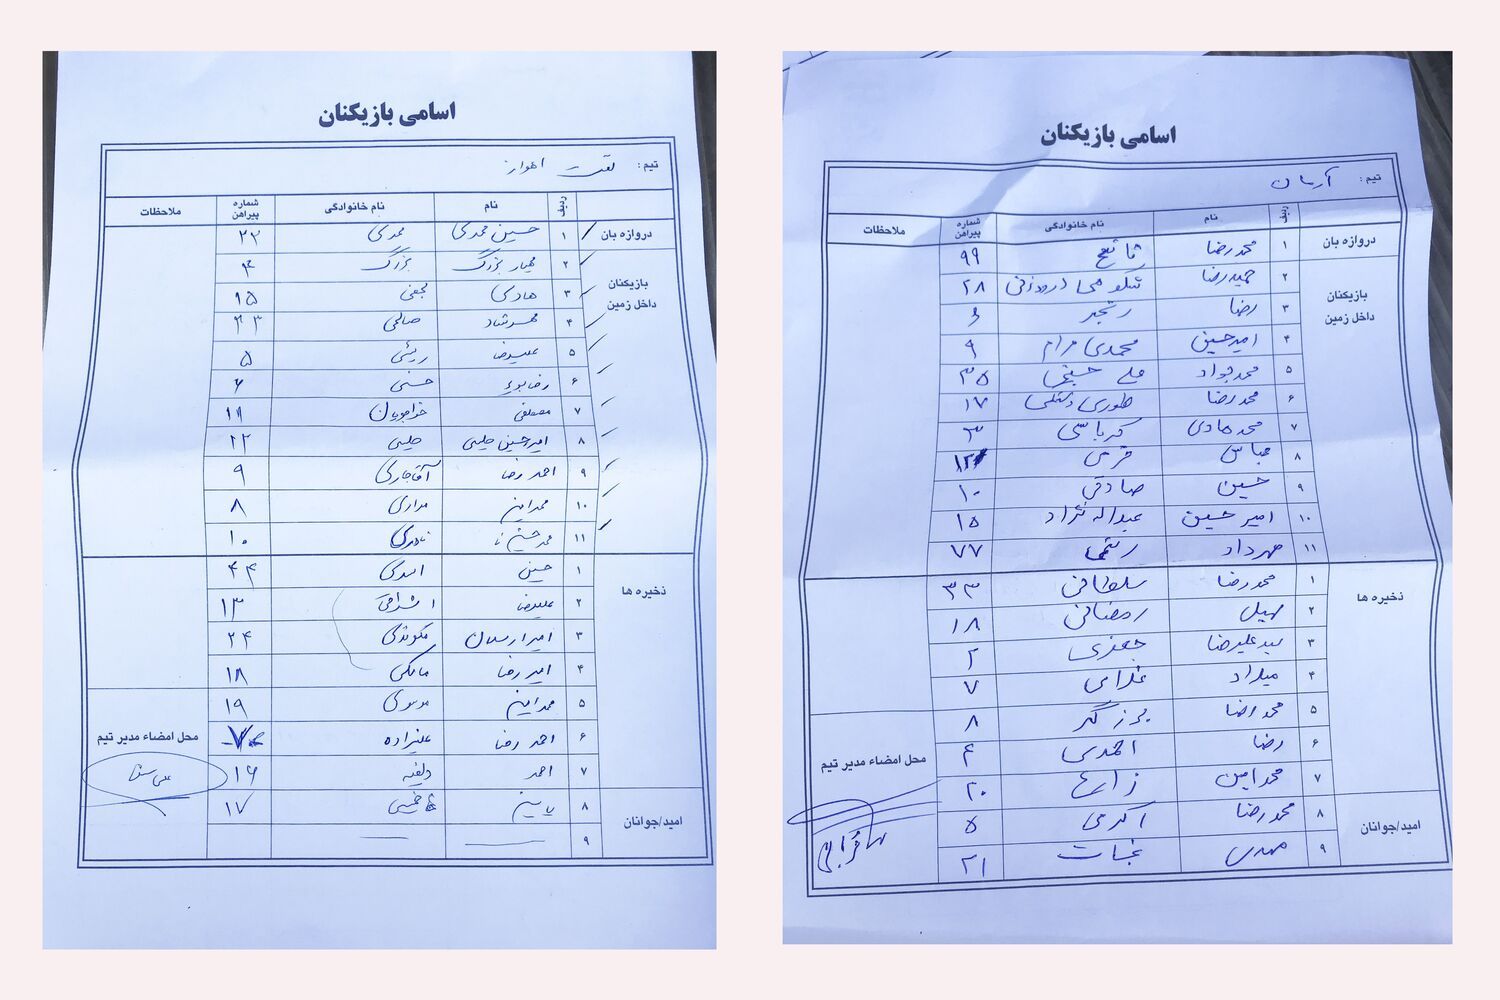 اسامی بازیکنان
تیم : نفت اهواز
ردیف نام نام خانوادگی شماره پیراهن ملاحظات
دروازه بان ۱ حسین محمدی محمدی ۲۲
بازیکنان داخل زمین ۲ مهیار بزرگ بزرگ ۴
۳ هادی نجفی ۱۵
۴ صالحی ۳۳
۵ علیرضا ۵
۶ حسنی ۶
۷ مصطفی خواجویان ۱۱
۸ امیرحسین حلبی حلبی ۲۲
۹ احمد رضا آقاجاری ۹
۱۰ محمدامین مرادی ۸
۱۱ نادری ۱۰
ذخیره ها ۱ حسین اسدی ۴۴
۲ علیرضا اشراقی ۱۳
۳ امیر ارسلان ۲۴
۴ امیر رضا مالکی ۱۸
۵ محمدامین موسوی ۱۹
۶ احمد رضا علیزاده
۷ احمد دلفیه ۱۶
امید/جوانان ۸ یاسین ۱۷
۹
محل امضاء مدیر تیم
اسامی بازیکنان
تیم : آرمان
ردیف نام نام خانوادگی شماره پیراهن ملاحظات
دروازه بان ۱ محمدرضا ۹۹
بازیکنان داخل زمین ۲ حمیدرضا ۲۸
۳ رضا رنجبر ۶
۴ امیرحسین محمدی مرام ۹
۵ محمدجواد حسینی ۳۵
۶ محمدرضا ۱۷
۷ محمدهادی کرباسی ۳
۸ عباس قرمی ۱۲
۹ حسین صادقی ۱۰
۱۰ امیر حسین عبداله نژاد ۱۵
۱۱ مهرداد ۷۷
ذخیره ها ۱ محمدرضا سلطانی ۳۳
۲ سهیل رمضانی ۱۸
۳ سیدعلیرضا جعفری ۲
۴ میلاد غلامی ۷
۵ محمدرضا برزگر ۸
۶ رضا احمدی ۴
۷ محمدامین زارع ۲۰
امید/جوانان ۸ محمدرضا اکرمی ۵
۹ مهدی نجات ۲۱
محل امضاء مدیر تیم